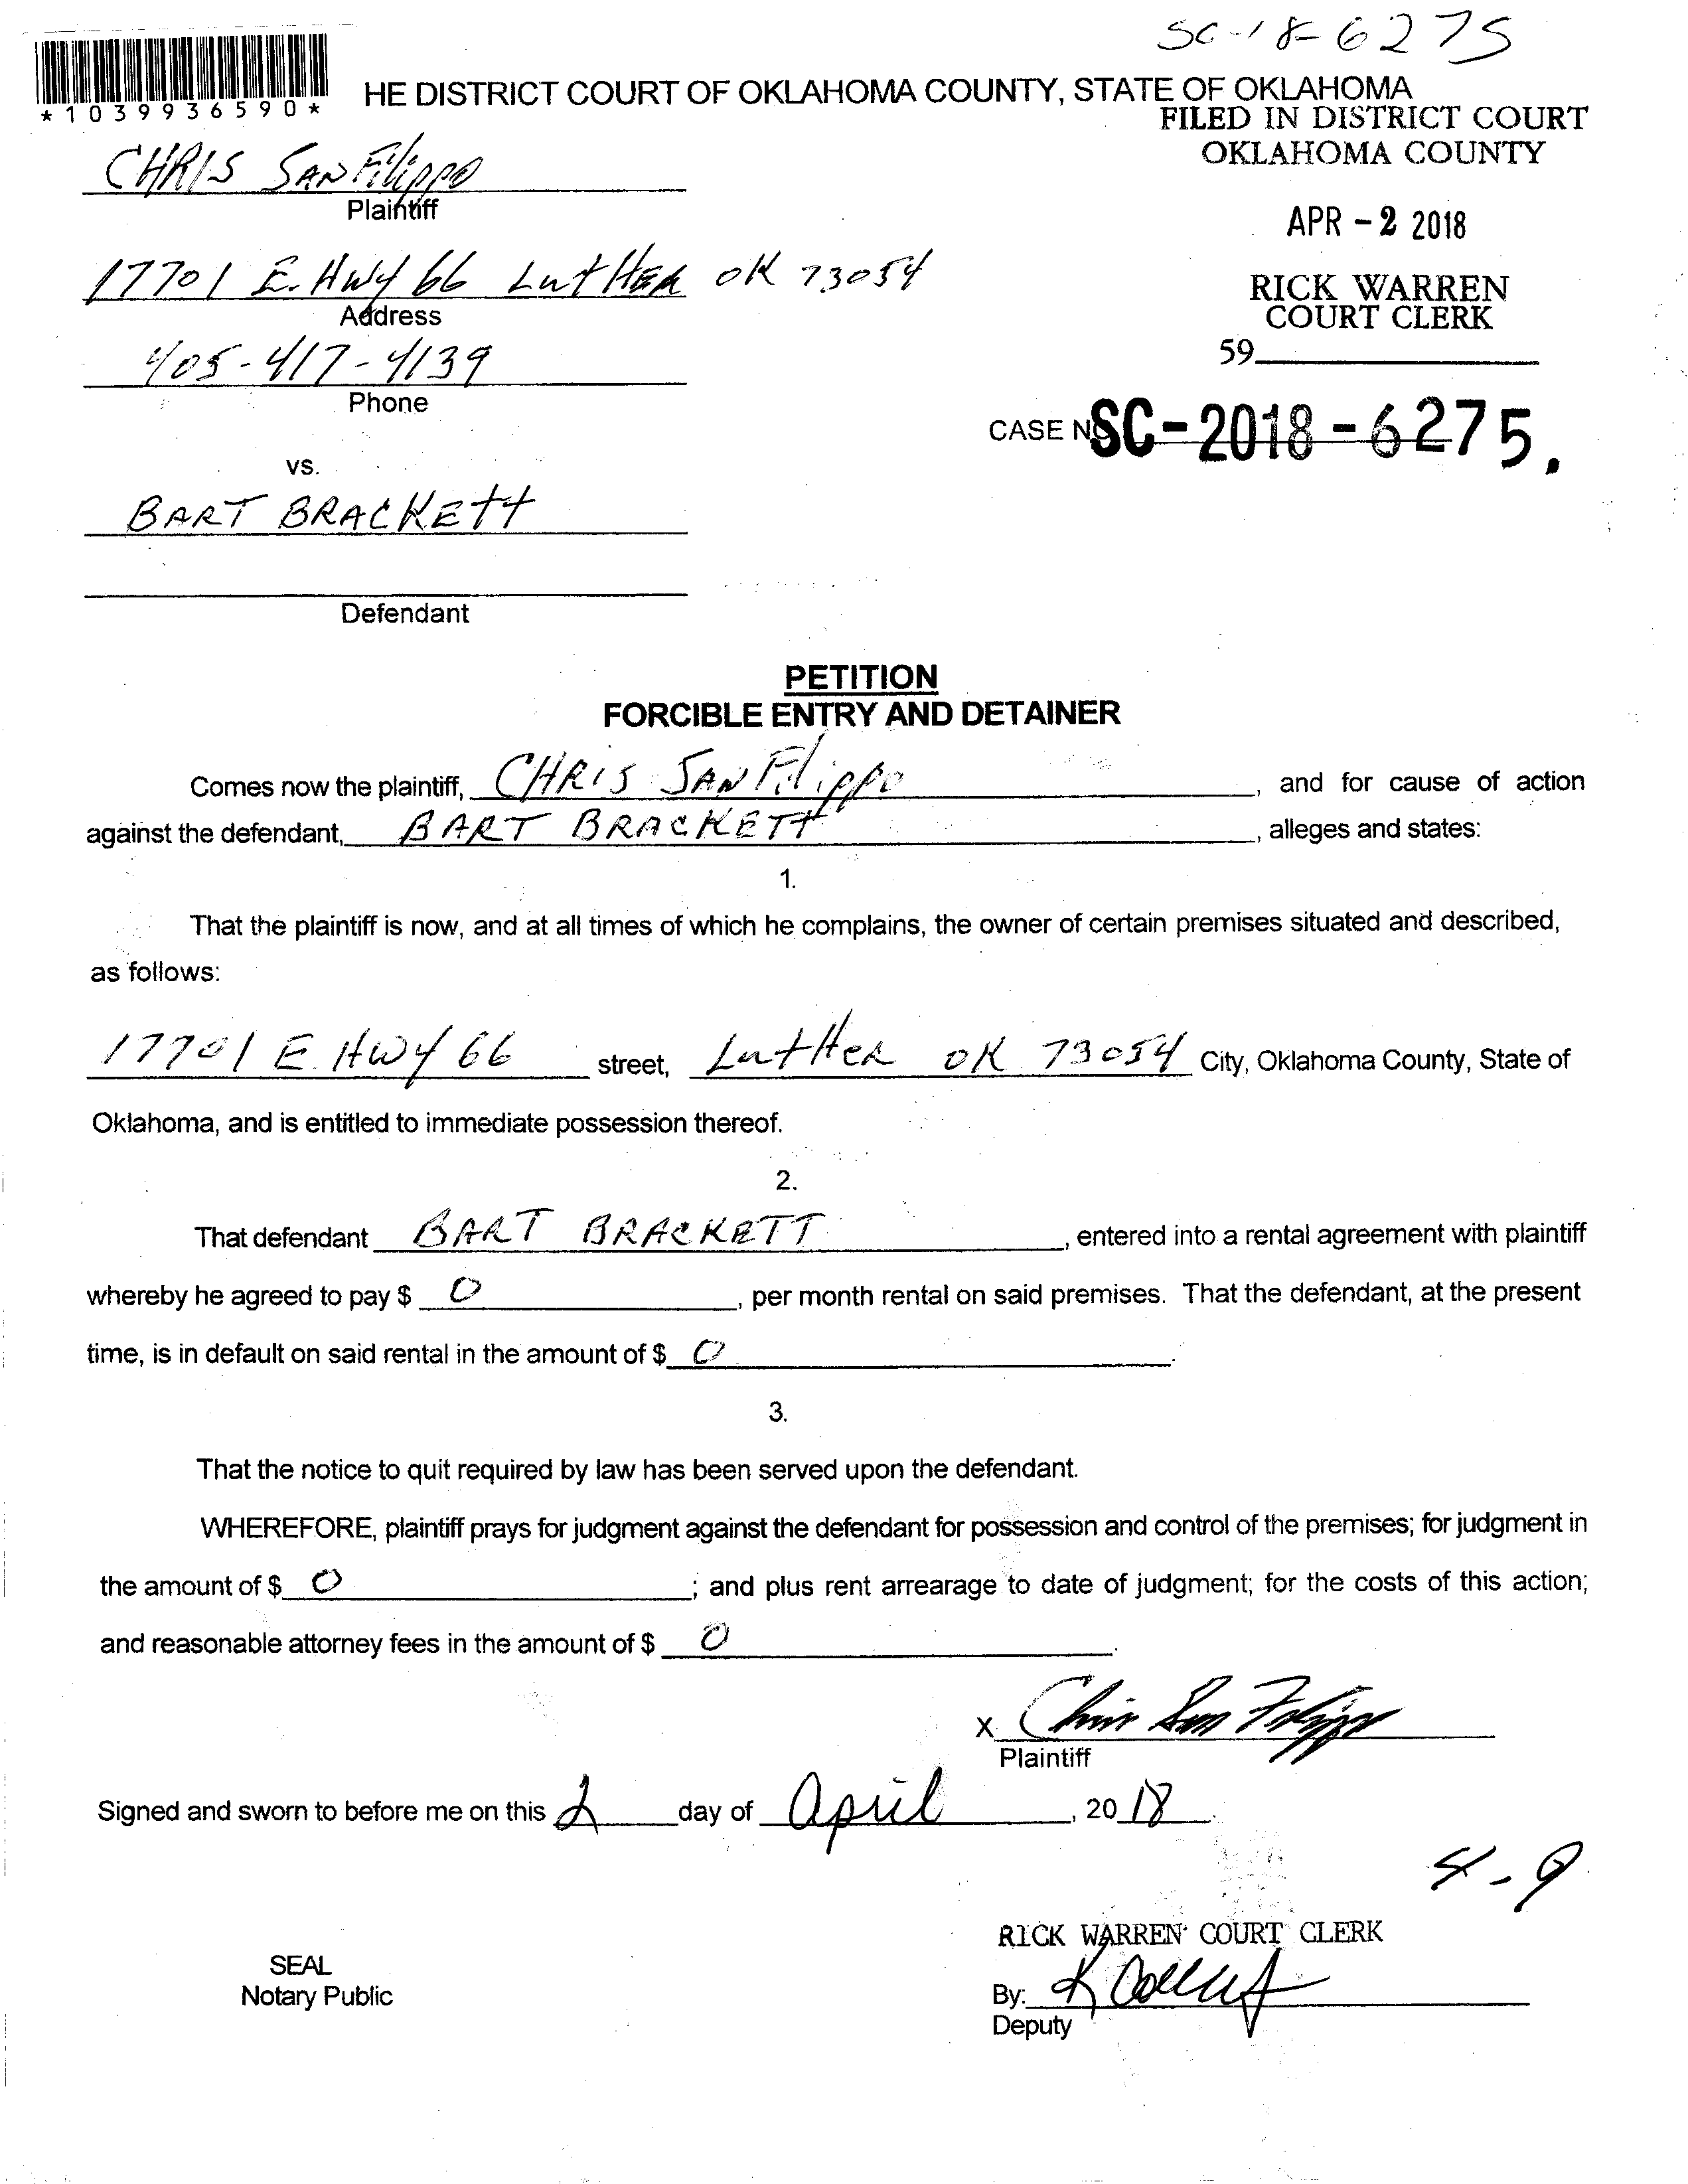 SC-18-6275
*1039936590*
HE DISTRICT COURT OF OKLAHOMA COUNTY, STATE OF OKLAHOMA
FILED IN DISTRICT COURT
OKLAHOMA COUNTY
CHRIS SANFilippo
Plaintiff
APR - 2 2018
17701 E. Hwy 66 LutHER OK 73054
Address
RICK WARREN
COURT CLERK
405-417-4139
Phone
59
CASE NO SC-2018-6275.
vs.
BART BRACKETT
Defendant
PETITION
FORCIBLE ENTRY AND DETAINER
Comes now the plaintiff, CHRIS SANFilippo, and for cause of action
against the defendant, BART BRACKETT, alleges and states:
1.
That the plaintiff is now, and at all times of which he complains, the owner of certain premises situated and described,
as follows:
17701 E. HWY 66 street, LutHER OK 73054 City, Oklahoma County, State of
Oklahoma, and is entitled to immediate possession thereof.
2.
That defendant BART BRACKETT, entered into a rental agreement with plaintiff
whereby he agreed to pay $ 0, per month rental on said premises. That the defendant, at the present
time, is in default on said rental in the amount of $ 0.
3.
That the notice to quit required by law has been served upon the defendant.
WHEREFORE, plaintiff prays for judgment against the defendant for possession and control of the premises; for judgment in
the amount of $ 0; and plus rent arrearage to date of judgment; for the costs of this action;
and reasonable attorney fees in the amount of $ 0.
X Chris San Filippo
Plaintiff
Signed and sworn to before me on this 2 day of April, 2018.
4-9
RICK WARREN COURT CLERK
SEAL
Notary Public
By:
Deputy